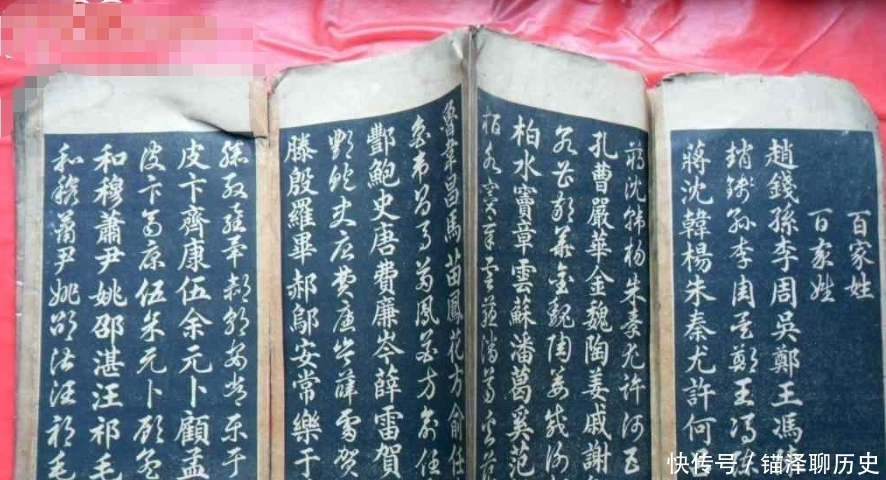 百家姓
百家姓
趙錢孫李周吳鄭王馮
趙錢孫李周吳鄭王馮陳
蔣沈韓楊朱秦尤許何
蔣沈韓楊朱秦尤許何吕
孔曹嚴華金魏陶姜戚謝
孔曹嚴華金魏陶姜戚謝
柏水竇章雲蘇潘葛奚范
柏水竇章雲蘇潘葛奚范
魯韋昌馬苗鳳花方俞任
魯韋昌馬苗鳳花方俞任
酆鮑史唐費廉岑薛雷賀
酆鮑史唐費廉岑薛雷賀
滕殷羅畢郝鄔安常樂于
滕殷羅畢郝鄔安常樂于
皮卞齊康伍余元卜顧孟
皮卞齊康伍余元卜顧孟
和穆蕭尹姚邵湛汪祁毛
和穆蕭尹姚邵湛汪祁毛
快传号/锚泽聊历史